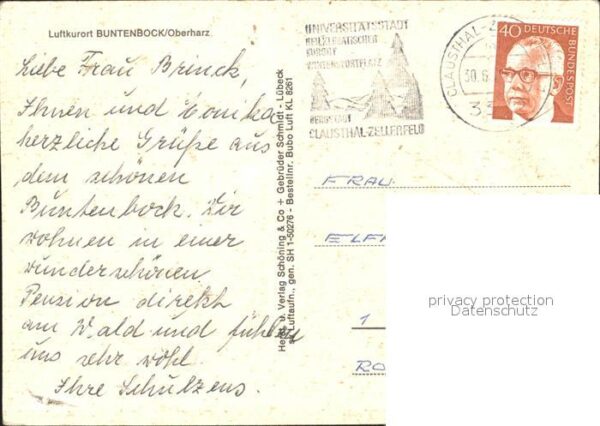 Luftkurort BUNTENBOCK/Oberharz
Liebe Frau Brinck,
Ihnen und Monika
herzliche Grüße aus
dem schönen
Buntenbock. Wir
wohnen in einer
wunderschönen
Pension direkt
am Wald und fühlen
uns sehr wohl
Ihre Schulzens.
Herst. u. Verlag Schöning & Co + Gebrüder Schmidt - Lübeck
Luftaufn., gen. SH 1-50276 - Bestellnr. Bubo Luft KL 8261
UNIVERSITÄTSSTADT
HEILKLIMATISCHER
KURORT
WINTERSPORTPLATZ
BERGSTADT
CLAUSTHAL-ZELLERFELD
CLAUSTHAL-Z
30.6
33
40 DEUTSCHE
BUNDESPOST
FRAU
ELF
1
RO
privacy protection
Datenschutz